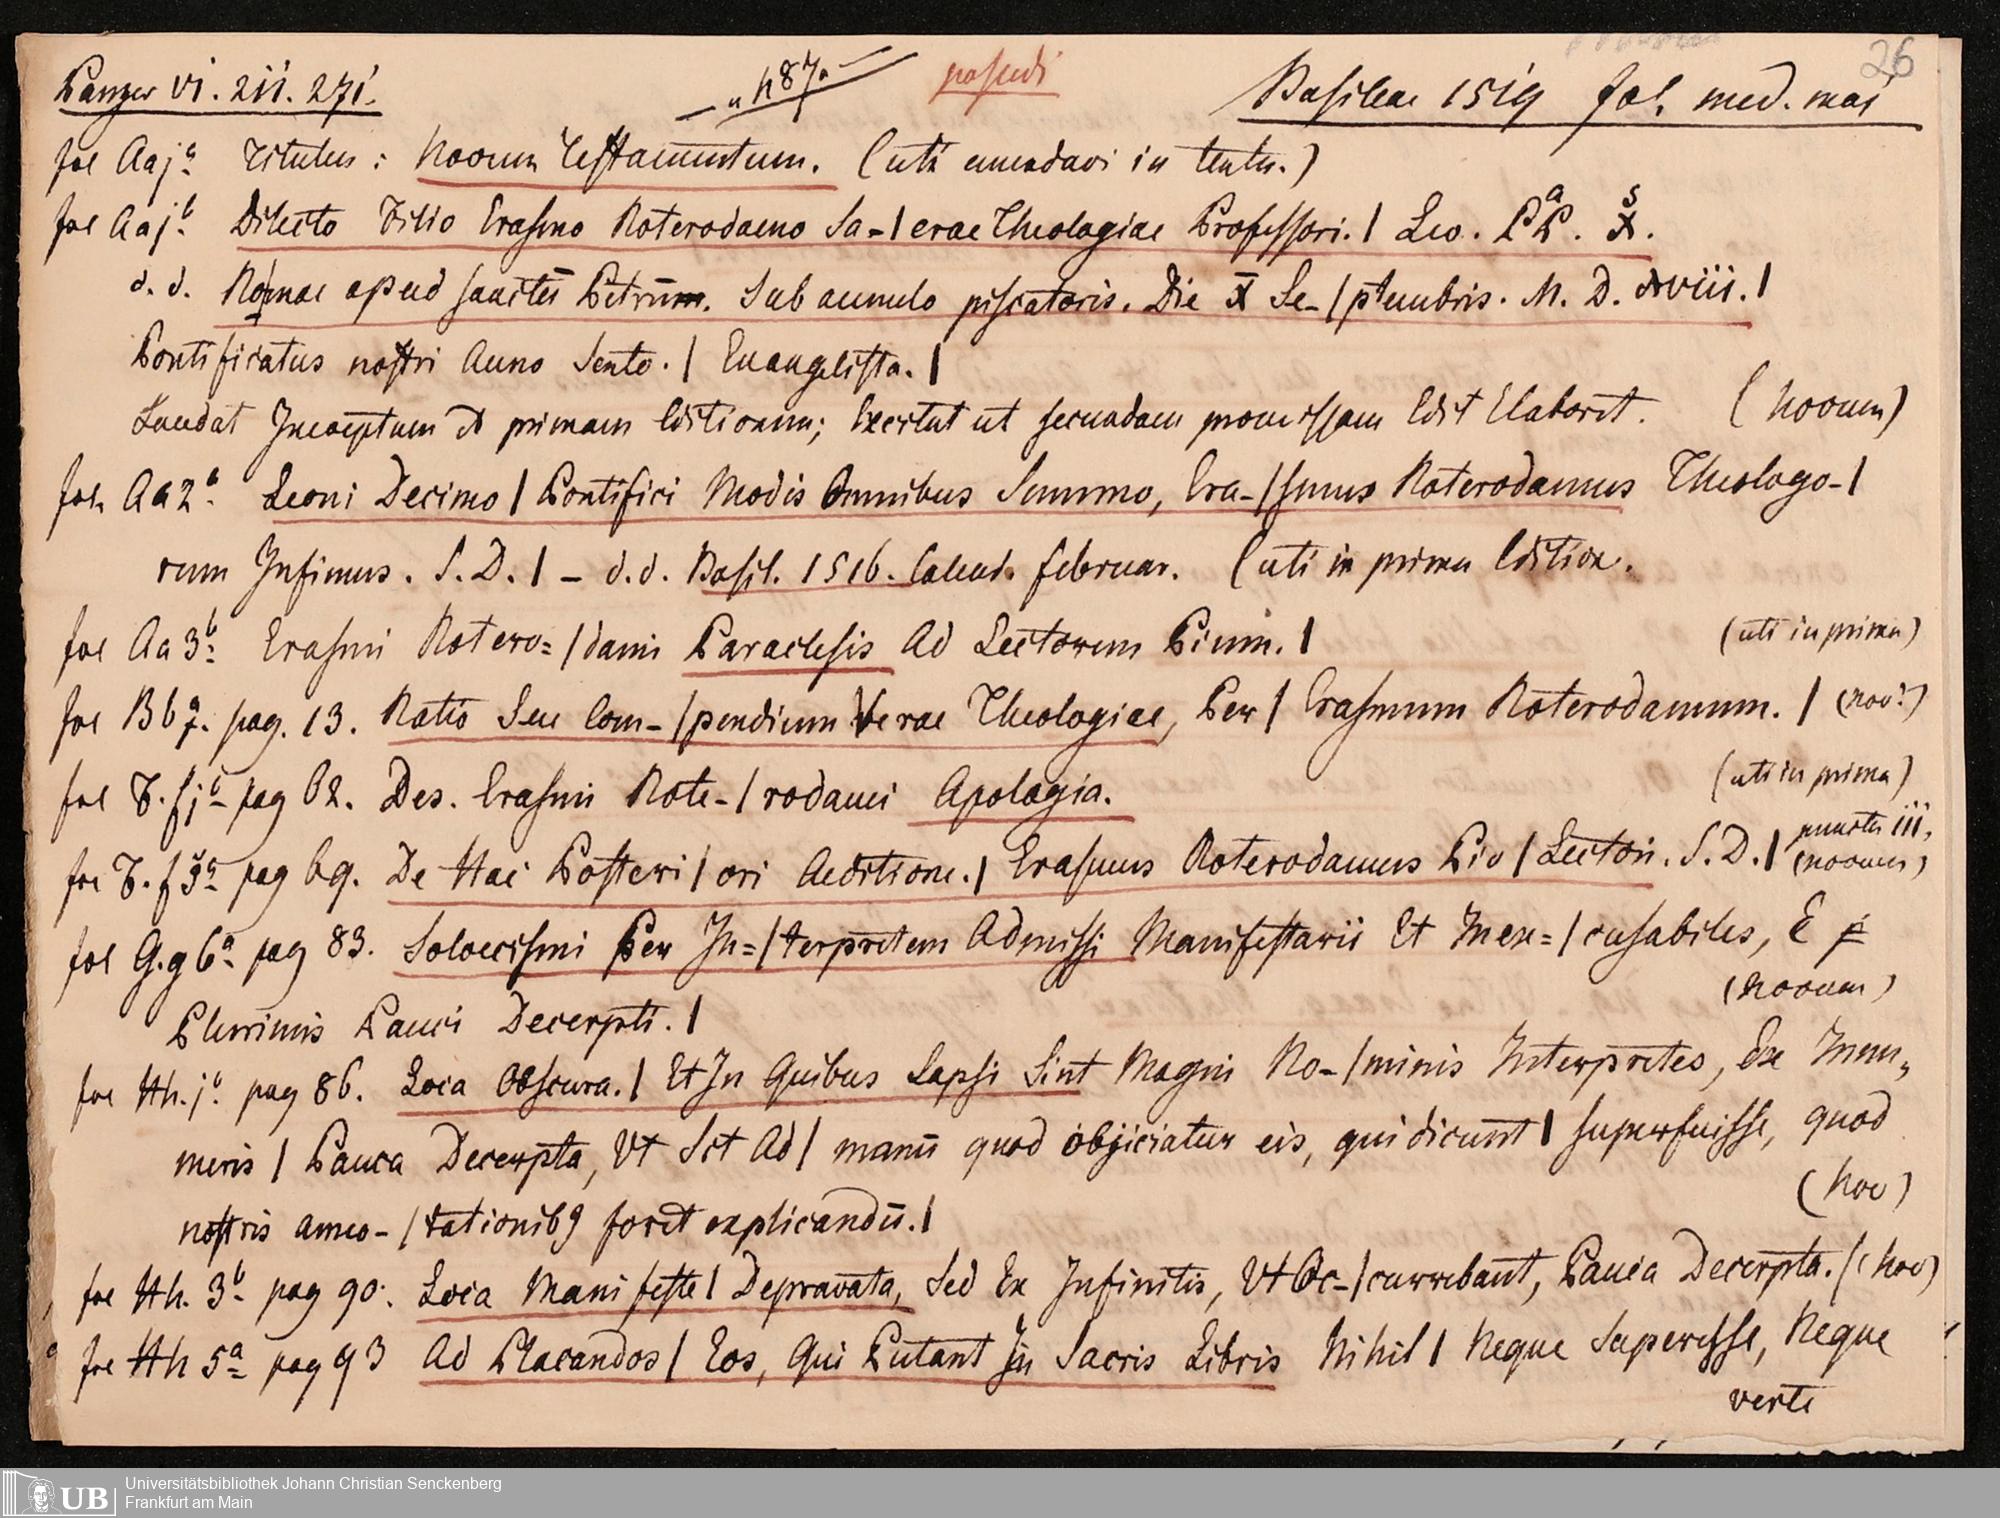 Panzer VI. 211. 271.
„ 487. possedi
Basileae 1519 fol. med. mai
26
fol Aaj a Titulus : Novum Testamentum. (uti emendavi in textu.)
fol Aaj b Dilecto Filio Erasmo Roterodamo Sa-| crae Theologiae Professori. | Leo. PP a. X s.
d. d. Romae apud sanctū Petrūm. Sub annulo piscatoris. Die X Se-| ptembris. M. D. xviii. |
Pontificatus nostri Anno Sexto. | Euangelista. |
Laudat Inceptum et primam Editionem; Excitat ut secundam promissam Edit Elaboret. (novum)
fol. Aa2 a Leoni Decimo | Pontifici Modis Omnibus Summo, Era-| smus Roterodamus Theologo-|
rum Infimus. S. D. | – d. d. Basil. 1516. Calend. februar. (uti in prima Edition.
fol Aa 3 b Erasmi Rotero= | dami Paraclesis Ad Lectorem Pium. | (uti in prima)
fol Bb a pag. 13. Ratio Seu Com-| pendium Verae Theologiae, Per | Erasmum Roterodamum. | (nov.)
fol F. fj b pag 62. Des. Erasmi Rote-| rodami Apologia. (uti in prima)
fol F. f 5 a pag 69. De Hac Posteri | ori Aeditione. | Erasmus Roterodamus Pio | Lectori. S. D. | puncta iii. (novum)
fol G.g 6 a pag 83. Soloecismi Per In= | terpretem Admissi Manifestarii Et Inex= | cusabiles, E
(novum)
Plurimis Pauci Decerpti. |
fol Hh. j b pag 86. Loca Obscura. | Et In Quibus Lapsi Sint Magni No-| minis Interpretes, Ex Innu„
meris | Pauca Decerpta, Vt Sit Ad | manū quod objiciatur eis, qui dicunt | superfuisse, quod
(nov)
nostris anno-| tationib9 foret explicandū. |
fol Hh. 3 b pag 90. Loca Manifeste | Depravata, Sed Ex Infinitis, Vt Oc-| currebant, Pauca Decerpta. | (nov)
fol Hh 5 a pag 93 Ad Placandos | Eos, Qui Putant In Sacris Libris Nihil | Neque Superesse, Neque
verte
UB
Universitätsbibliothek Johann Christian Senckenberg
Frankfurt am Main